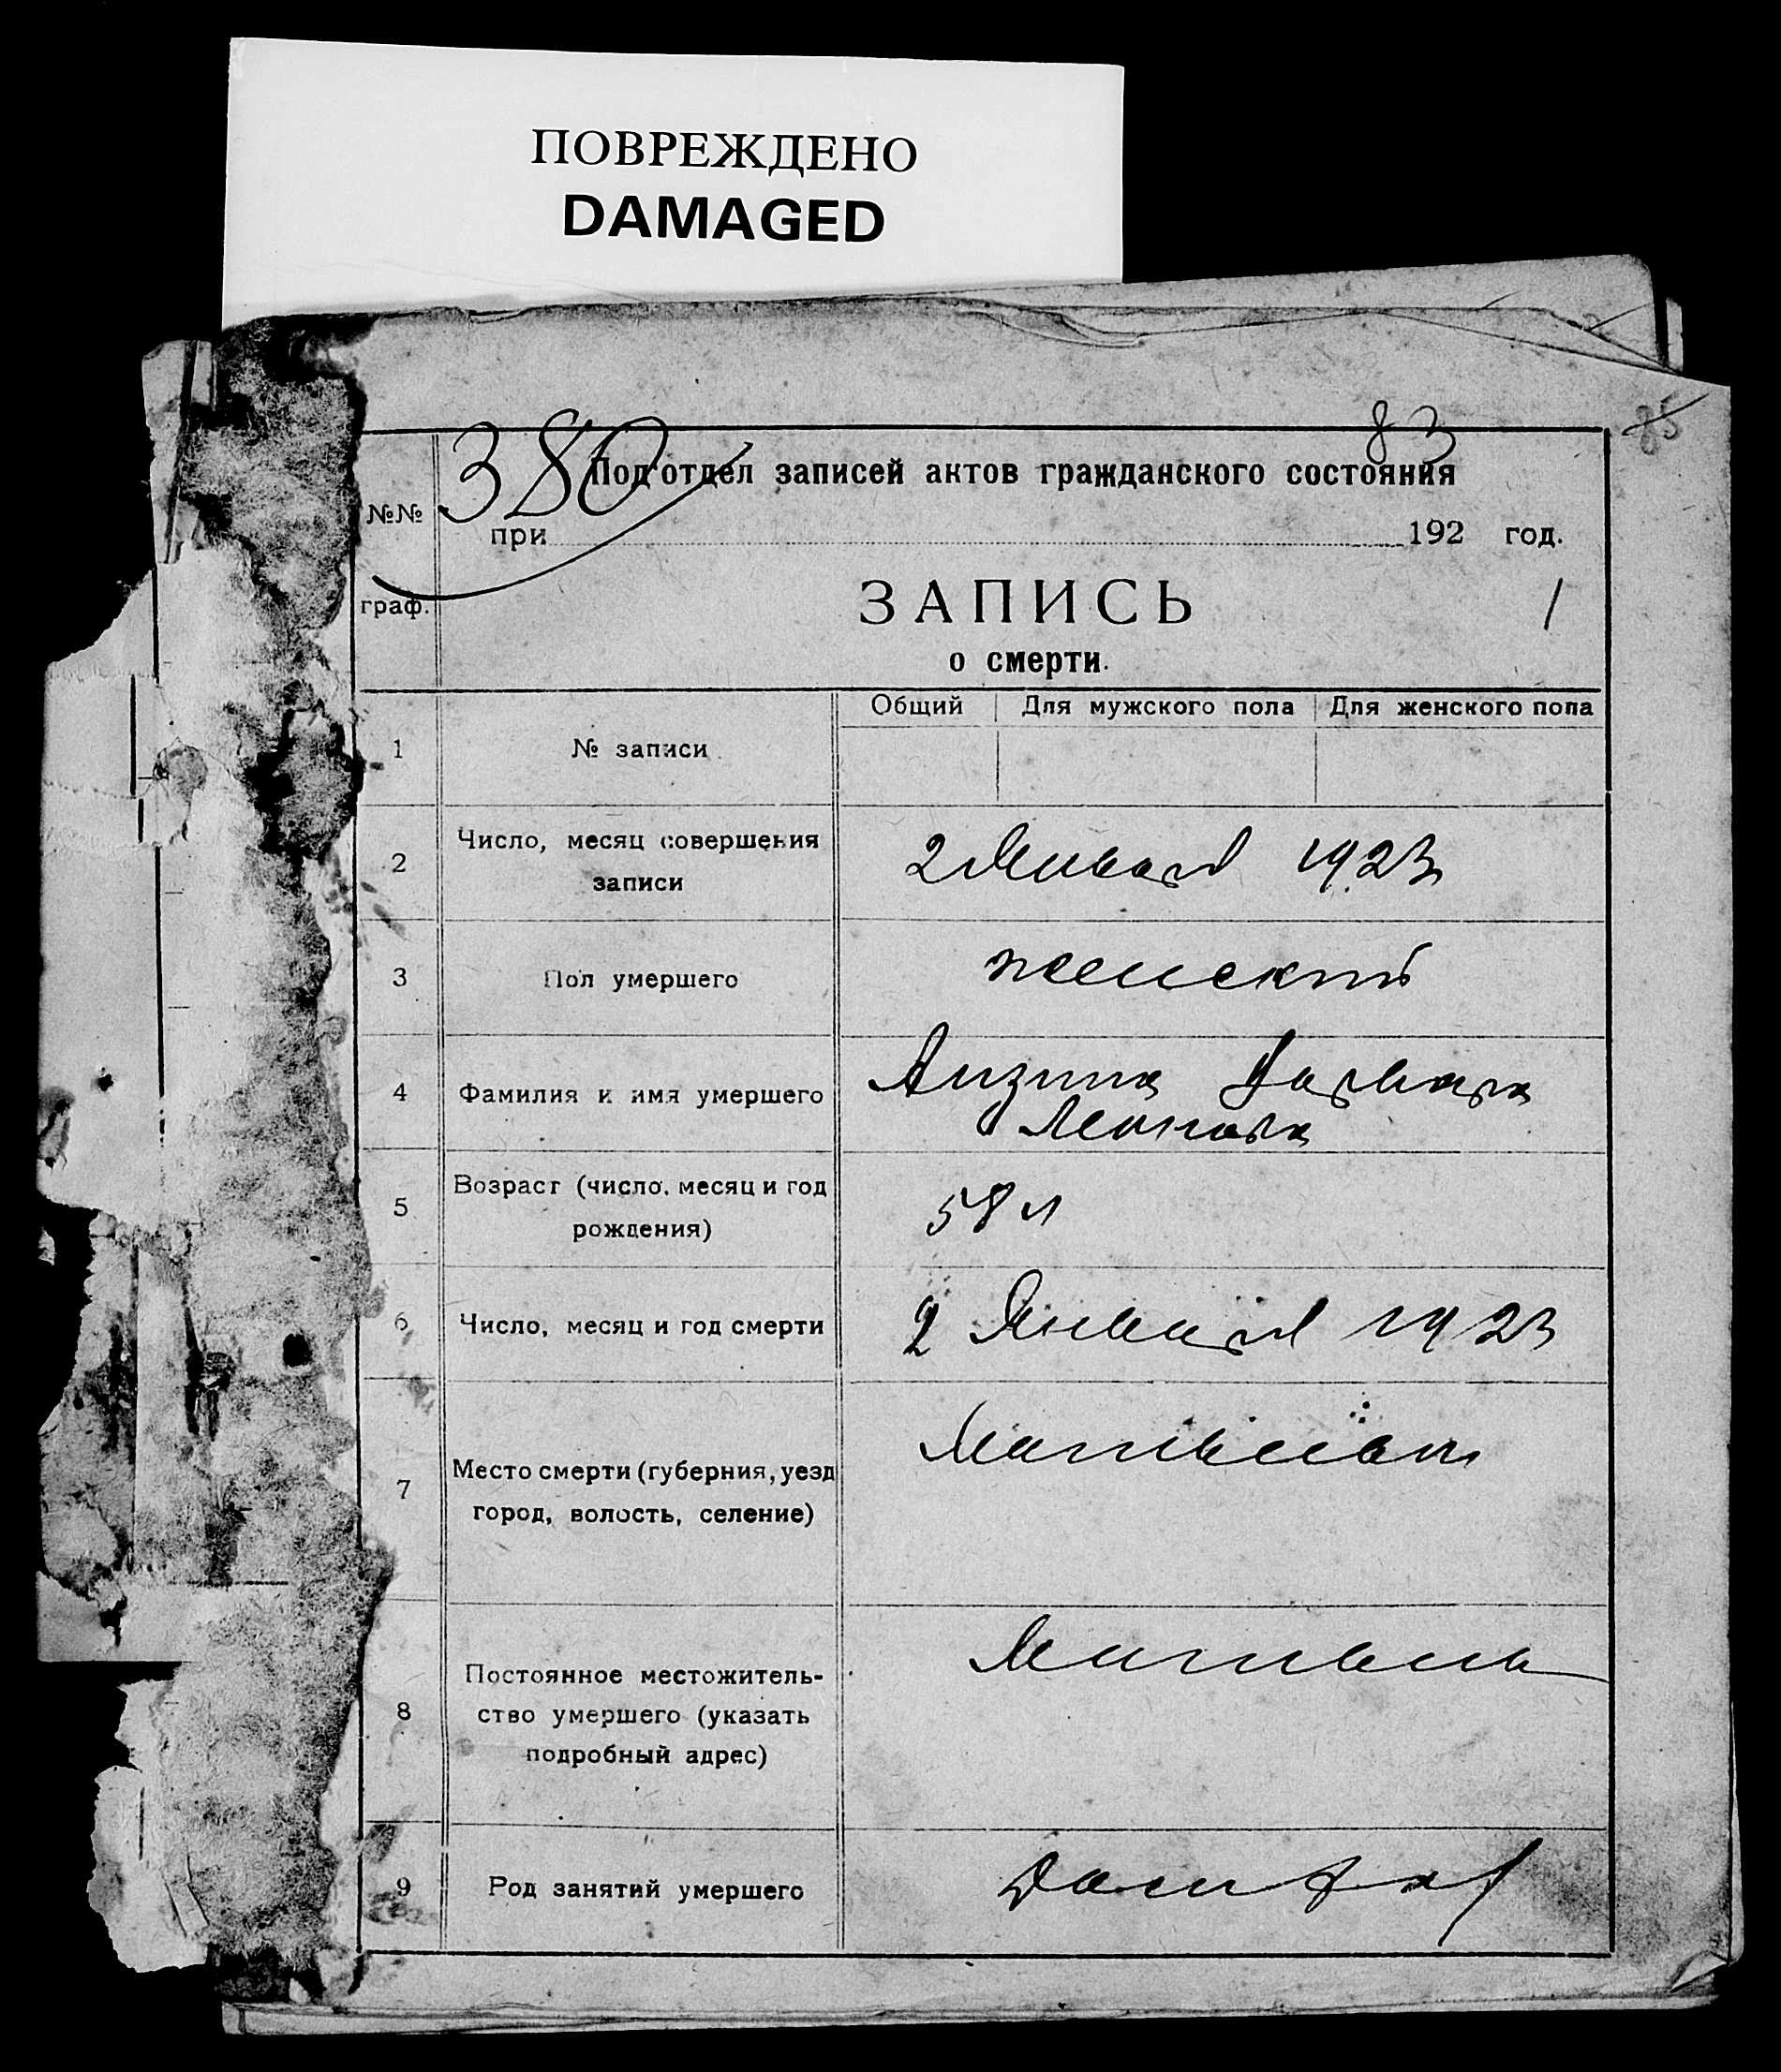 ПОВРЕЖДЕНО
DAMAGED
83
85
380
Под'отдел записей актов гражданского состояния
№№
при 192 год.
граф.
ЗАПИСЬ
1
о смерти.
Общий Для мужского пола Для женского пола
1 № записи
2 Число, месяц совершения
записи
2 Января 1923
3 Пол умершего женский
4 Фамилия и имя умершего
Варвара
5 Возраст (число, месяц и год
рождения)
58 л
6 Число, месяц и год смерти 2 Января 1923
7 Место смерти (губерния, уезд
город, волость, селение)
8 Постоянное местожитель-
ство умершего (указать
подробный адрес)
9 Род занятий умершего